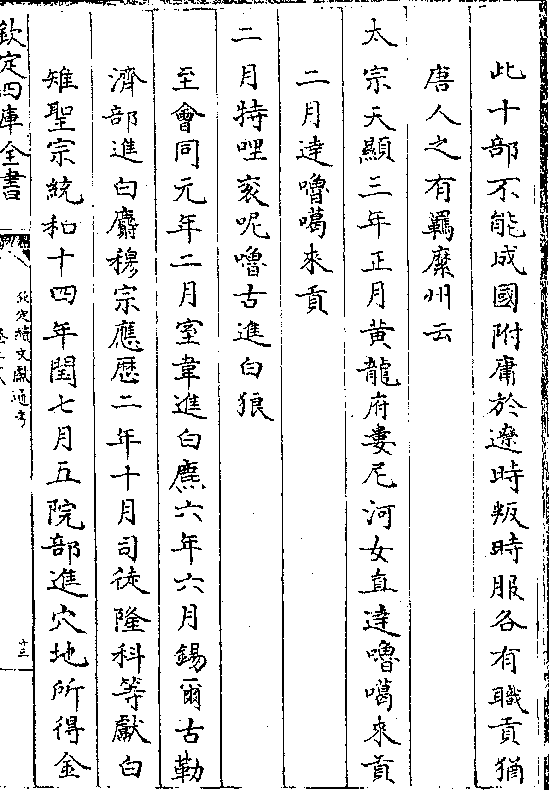 此十部不能成國附庸於遼時叛時服各有職貢猶
唐人之有羈縻州云
太宗天顯三年正月黃龍府婁尼河女直達嚕噶來貢
二月達嚕噶來貢
二月特哩袞呢嚕古進白狼
至會同元年二月室韋進白麃六年六月錫爾古勒
濟部進白麝穆宗應歷二年十月司徒隆科等獻白
雉聖宗統和十四年閏七月五院部進穴地所得金
欽定四庫全書
欽定續文獻通考
十三